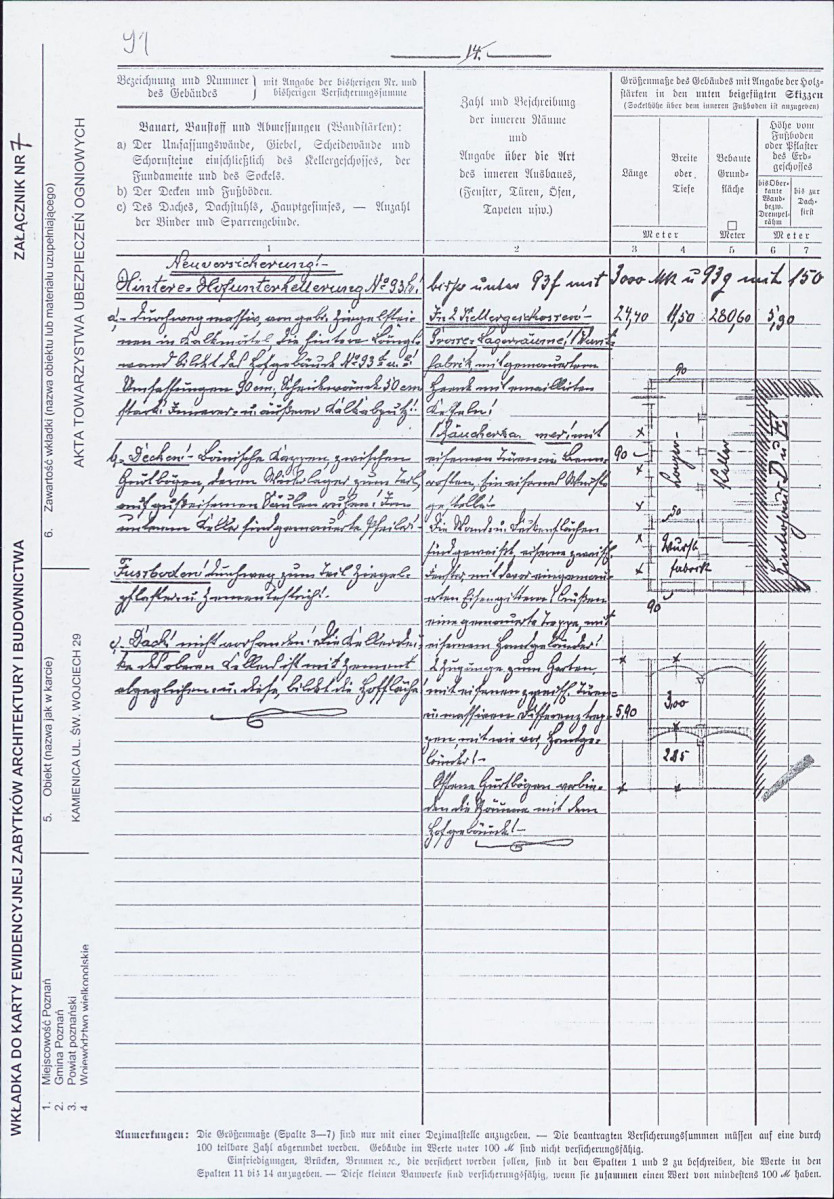 WKŁADKA DO KARTY EWIDENCYJNEJ ZABYTKÓW ARCHITEKTURY I BUDOWNICTWA
ZAŁĄCZNIK NR 7
1. Miejscowość Poznań
2. Gmina Poznań
3. Powiat poznański
4 Województwo wielkopolskie
5. Obiekt (nazwa jak w karcie)
KAMIENICA UL. ŚW. WOJCIECH 29
6. Zawartość wkładki (nazwa obiektu lub materiału uzupełniającego)
AKTA TOWARZYSTWA UBEZPIECZEŃ OGNIOWYCH
91
14.
Bezeichnung und Nummer des Gebäudes
mit Angabe der bisherigen Nr. und bisherigen Versicherungssumme
Bauart, Baustoff und Abmessungen (Wandstärken):
a) Der Umfassungswände, Giebel, Scheidewände und
Schornsteine einschließlich des Kellergeschosses, der
Fundamente und des Sockels.
b) Der Decken und Fußböden.
c) Des Daches, Dachstuhls, Hauptgesimses, — Anzahl
der Binder und Sparrengebinde.
Zahl und Beschreibung
der inneren Räume
und
Angabe über die Art
des inneren Ausbaues,
(Fenster, Türen, Öfen,
Tapeten usw.)
Größenmaße des Gebäudes mit Angabe der Holz-
stärken in den unten beigefügten Skizzen
(Sockelhöhe über dem inneren Fußboden ist anzugeben)
Länge
Breite
oder
Tiefe
Bebaute
Grund-
fläche
Höhe vom
Fußboden
oder Pflaster
des Erd-
geschosses
bis Ober-
kante
Wand-
bezw.
Drempel-
rähm
bis zur
Dach-
first
Meter
□
Meter
Meter
1 2 3 4 5 6 7
Neuversicherung!
Hintere Hofunterkellerung No 93h!
bisher unter 93f mit 3000 Mk u 93g mit 150
a, durchweg massiv, von gebr. Ziegelstei-
nen in Kalkmörtel, die hintere Längs-
wand bildet das Hofgebäude No 93
Umfassungen 90 cm, Scheidewände 50 cm
stark! Innerer u. äußerer Kalkabputz!
b, Decken! Böhmische Kappen zwischen
Gurtbögen, deren Widerlager zum Teil
auf gußeisernen Säulen ruhen! Im
unteren Keller sind gemauerte Pfeiler!
Fussboden! durchweg zum Teil Ziegel-
pflaster u. Zementestrich!
c, Dach! nicht vorhanden! Die Kellerdek-
ke des oberen Kellers ist mit Zement
abgeglichen u. diese bildet die Hoffläche!
In 2 Kellergeschossen!
Grosse Lagerräume! Wurst-
fabrik mit gemauertem
Herde mit emaillirten
Kesseln!
Räucherka mer! mit
eisernen Türen
gestelle!
Die Wand u. Deckenflächen
sind geweisst, eiserne
Fenster mit davor eingemau-
erten Eisengittern! Außen
eine gemauerte Treppe, mit
eisernem Handgeländer!
Zugänge zum Garten
mit eisernen Türen
u. massiven Differenztrep-
pen, mit wie vor, Handge-
länder!
Offene Gurtbögen verbin-
den die Räume mit dem
Hofgebäude!
24,40 11,50 280,60 5,90
90
90
50
90
Lager-
Keller
Wurst
fabrik
Hinterhaus D u E
5,90
300
285
Anmerkungen: Die Größenmaße (Spalte 3—7) sind nur mit einer Dezimalstelle anzugeben. — Die beantragten Versicherungssummen müssen auf eine durch
100 teilbare Zahl abgerundet werden. Gebäude im Werte unter 100 M sind nicht versicherungsfähig.
Einfriedigungen, Brücken, Brunnen ꝛc., die versichert werden sollen, sind in den Spalten 1 und 2 zu beschreiben, die Werte in den
Spalten 11 bis 14 anzugeben. — Diese kleinen Bauwerke sind versicherungsfähig, wenn sie zusammen einen Wert von mindestens 100 M haben.